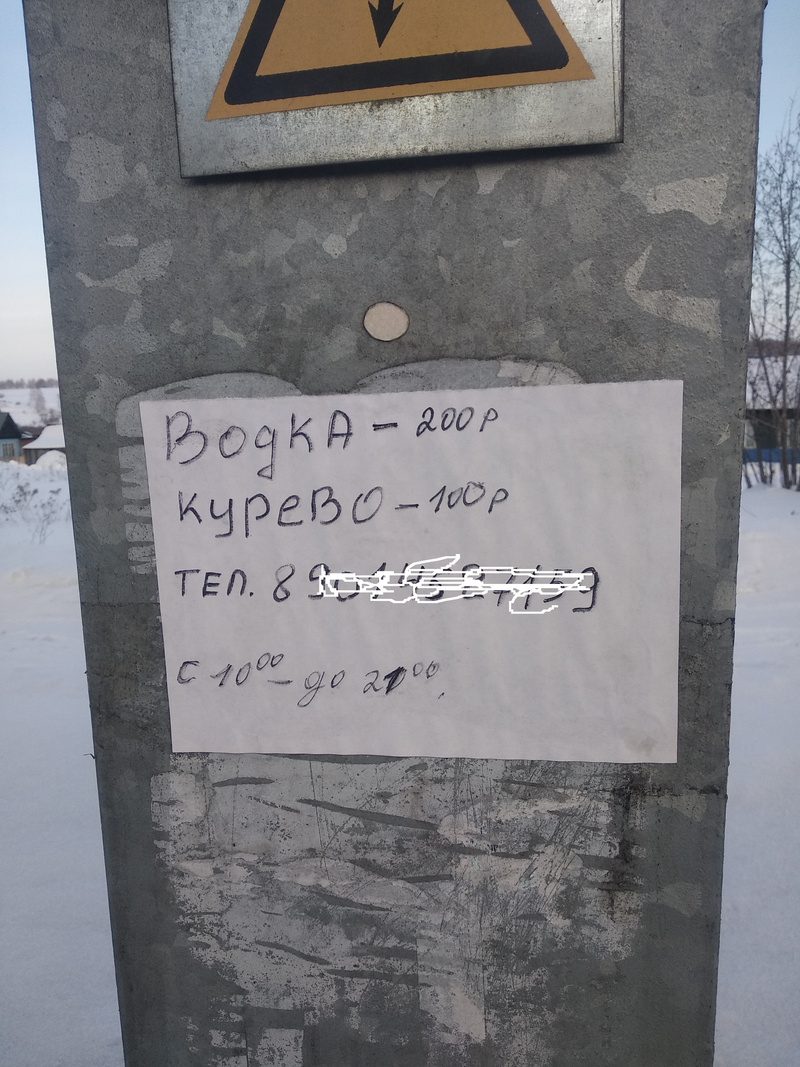 Водка - 200р
Курево - 100р
тел. 8
с 10⁰⁰ - до 21⁰⁰